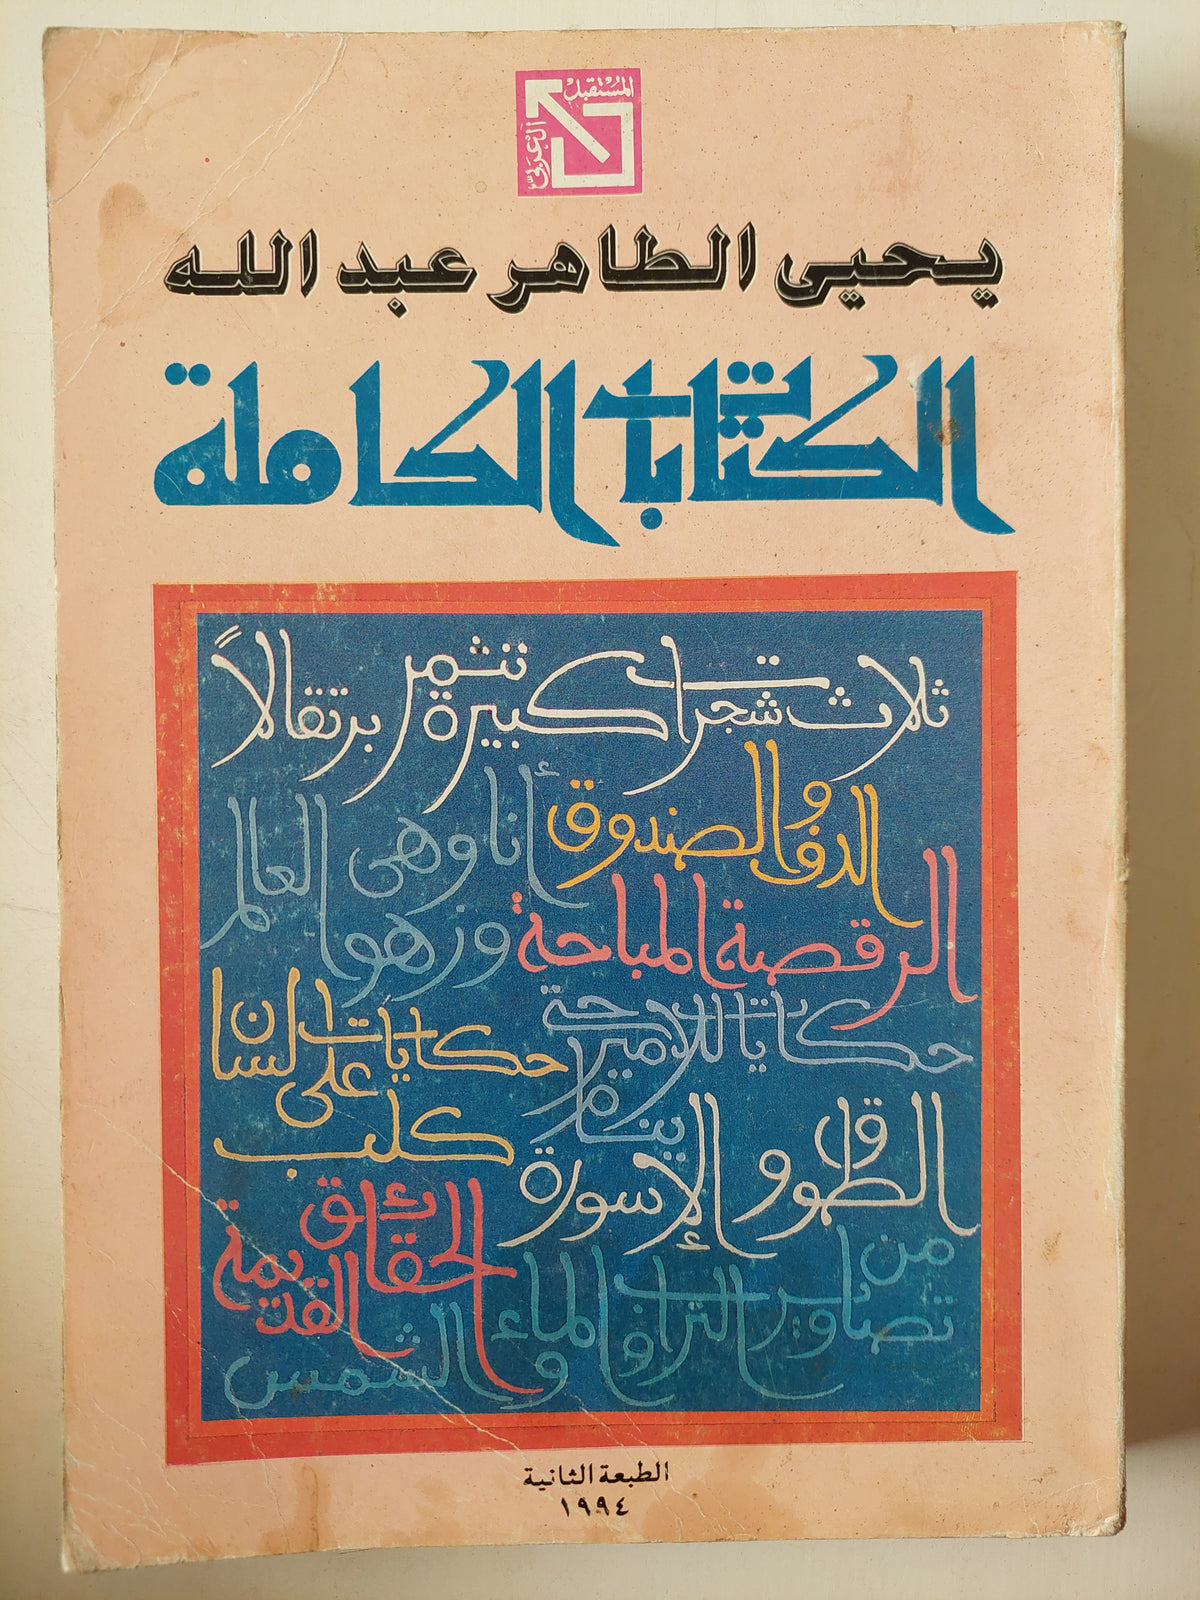 المُسْتقبل
العَرَبى
يحيى الطاهر عبد الله
الكتابات الكاملة
ثلاث شجرات كبيرة تثمر برتقالاً
الدف والصندوق
أنا وهى وزهور العالم
الرقصة المباحة
حكايات للأمير حتى ينام
حكايات على لسان كلب
الطوق والإسورة
الحقائق القديمة
من تصاوير التراب والماء والشمس
الطبعة الثانية
١٩٩٤